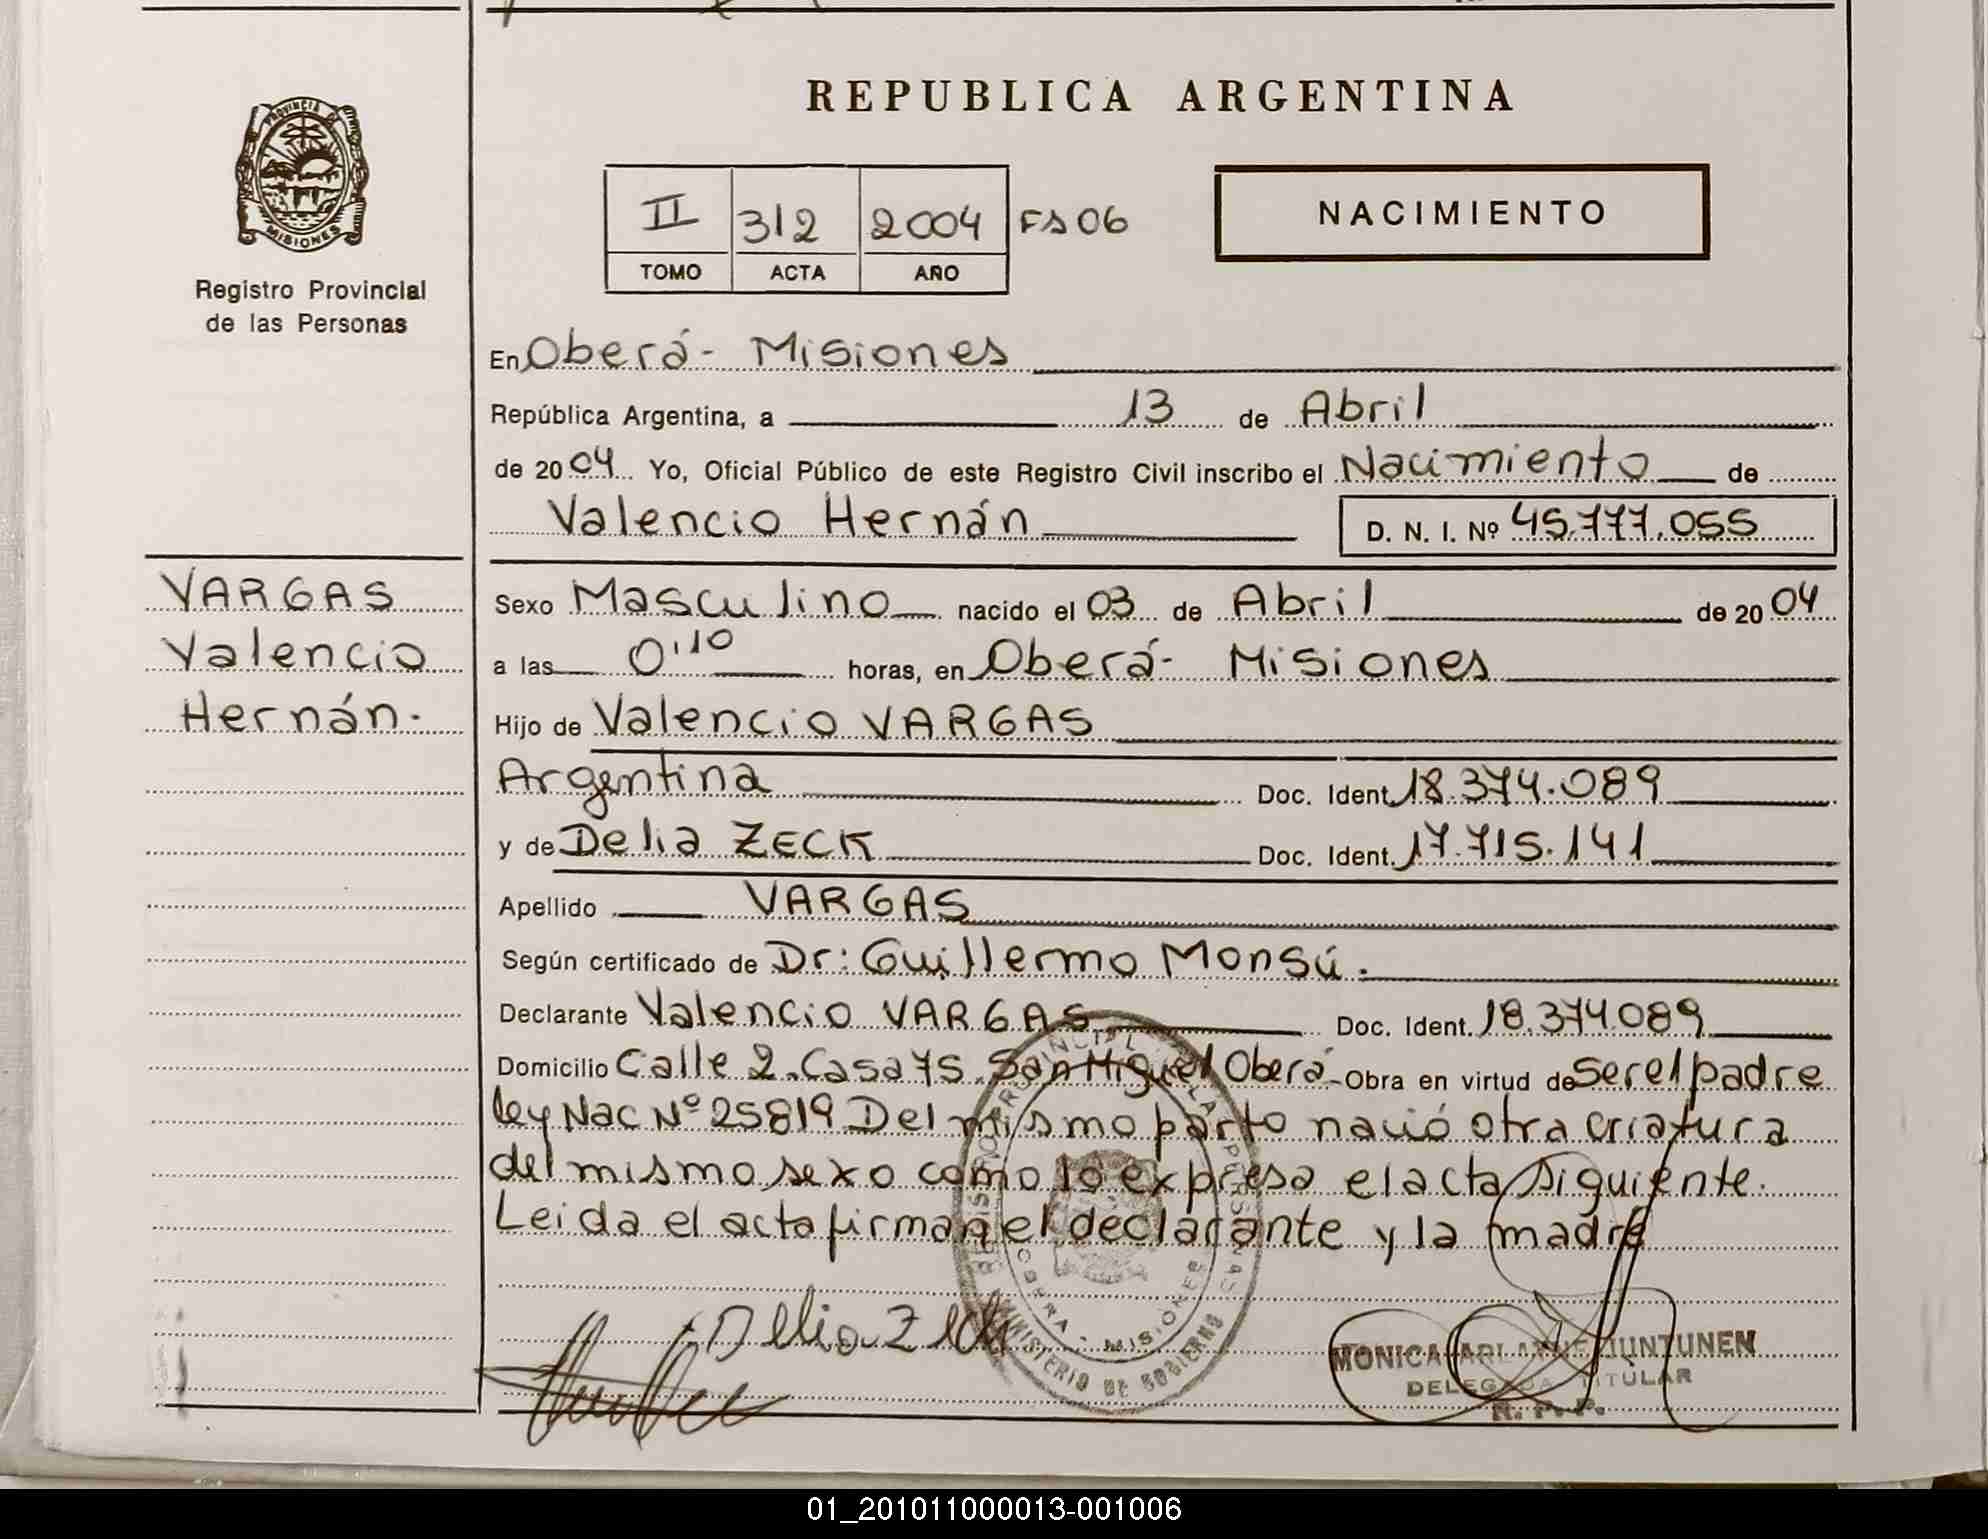 REPUBLICA ARGENTINA
PROVINCIA DE
MISIONES
Registro Provincial
de las Personas
II 312 2004 Fs 06
TOMO ACTA AÑO
NACIMIENTO
En Oberá - Misiones
República Argentina, a 13 de Abril
de 2004 Yo, Oficial Público de este Registro Civil inscribo el Nacimiento de
Valencio Hernán D. N. I. Nº 45.777.055
VARGAS
Valencio
Hernán.
Sexo Masculino nacido el 03 de Abril de 2004
a las 0'10 horas, en Oberá - Misiones
Hijo de Valencio VARGAS
Argentina Doc. Ident. 18.374.089
y de Delia ZECK Doc. Ident. 17.715.141
Apellido VARGAS
Según certificado de Dr: Guillermo Monsú.
Declarante Valencio VARGAS Doc. Ident. 18.374.089
Domicilio Calle 2. Casa 75. San Miguel Oberá - Obra en virtud de ser el padre
ley Nac Nº 25819 Del mismo parto nació otra criatura
del mismo sexo como lo expresa el acta siguiente.
Leida el acta firman el declarante y la madre
Delia Zeck
MINISTERIO DE GOBIERNO
OBERA - MISIONES
MONICA JUNTUNEN
DELEGADA TITULAR
R. P. P.
01_201011000013-001006